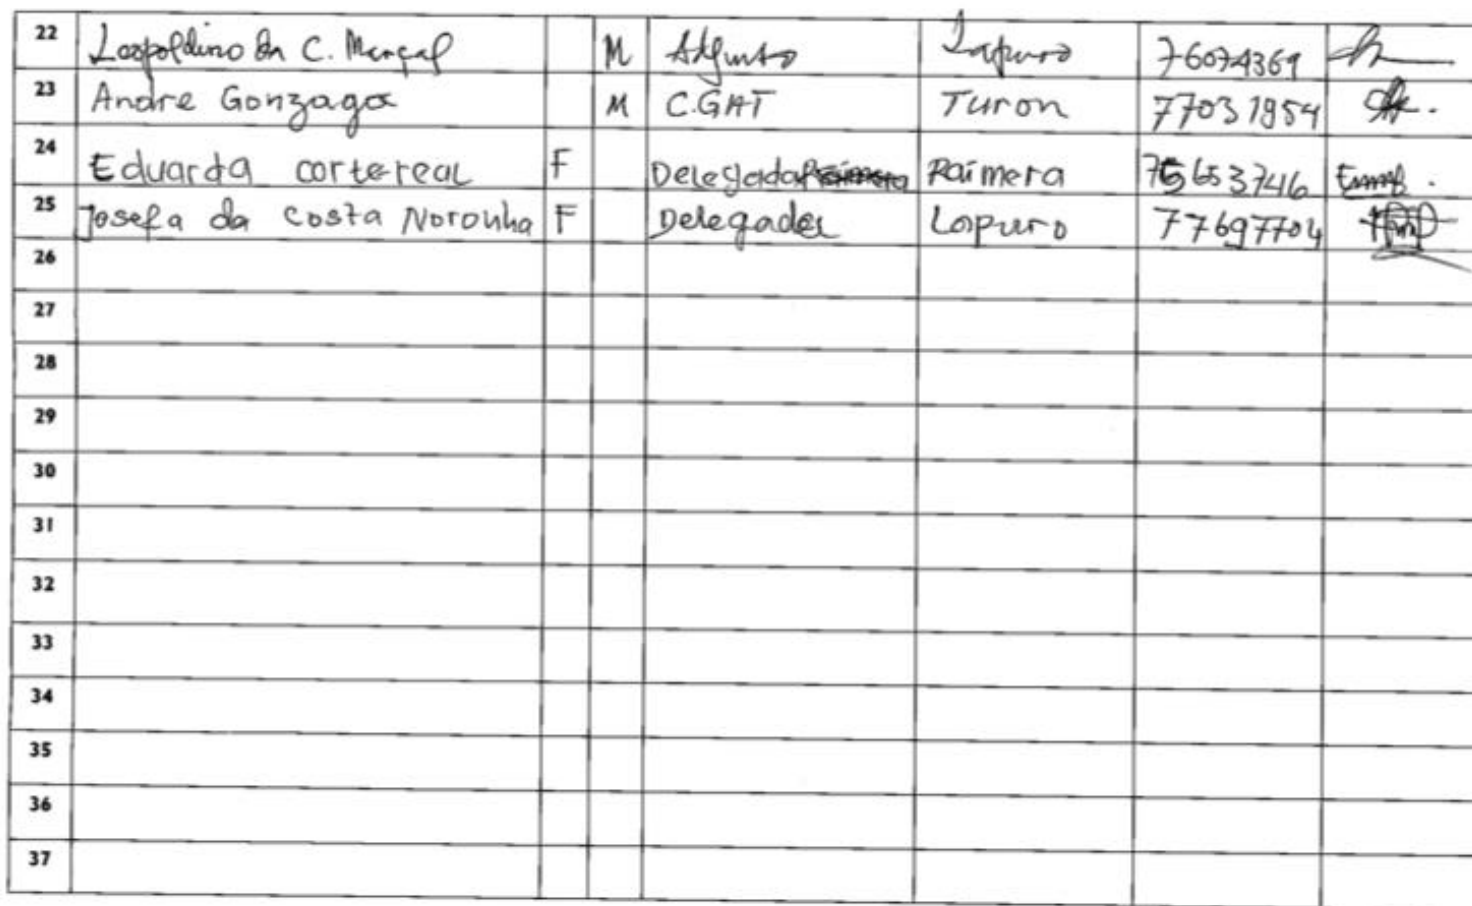 22 Leopoldino da C. Marçal M Adjunto Lapuro 76074369
23 Andre Gonzaga M C.GAT Turon 77031954
24 Eduarda cortereal F Delegada Raimera 75653746
25 Josefa da Costa Noronha F Delegada Lapuro 77697704
26
27
28
29
30
31
32
33
34
35
36
37